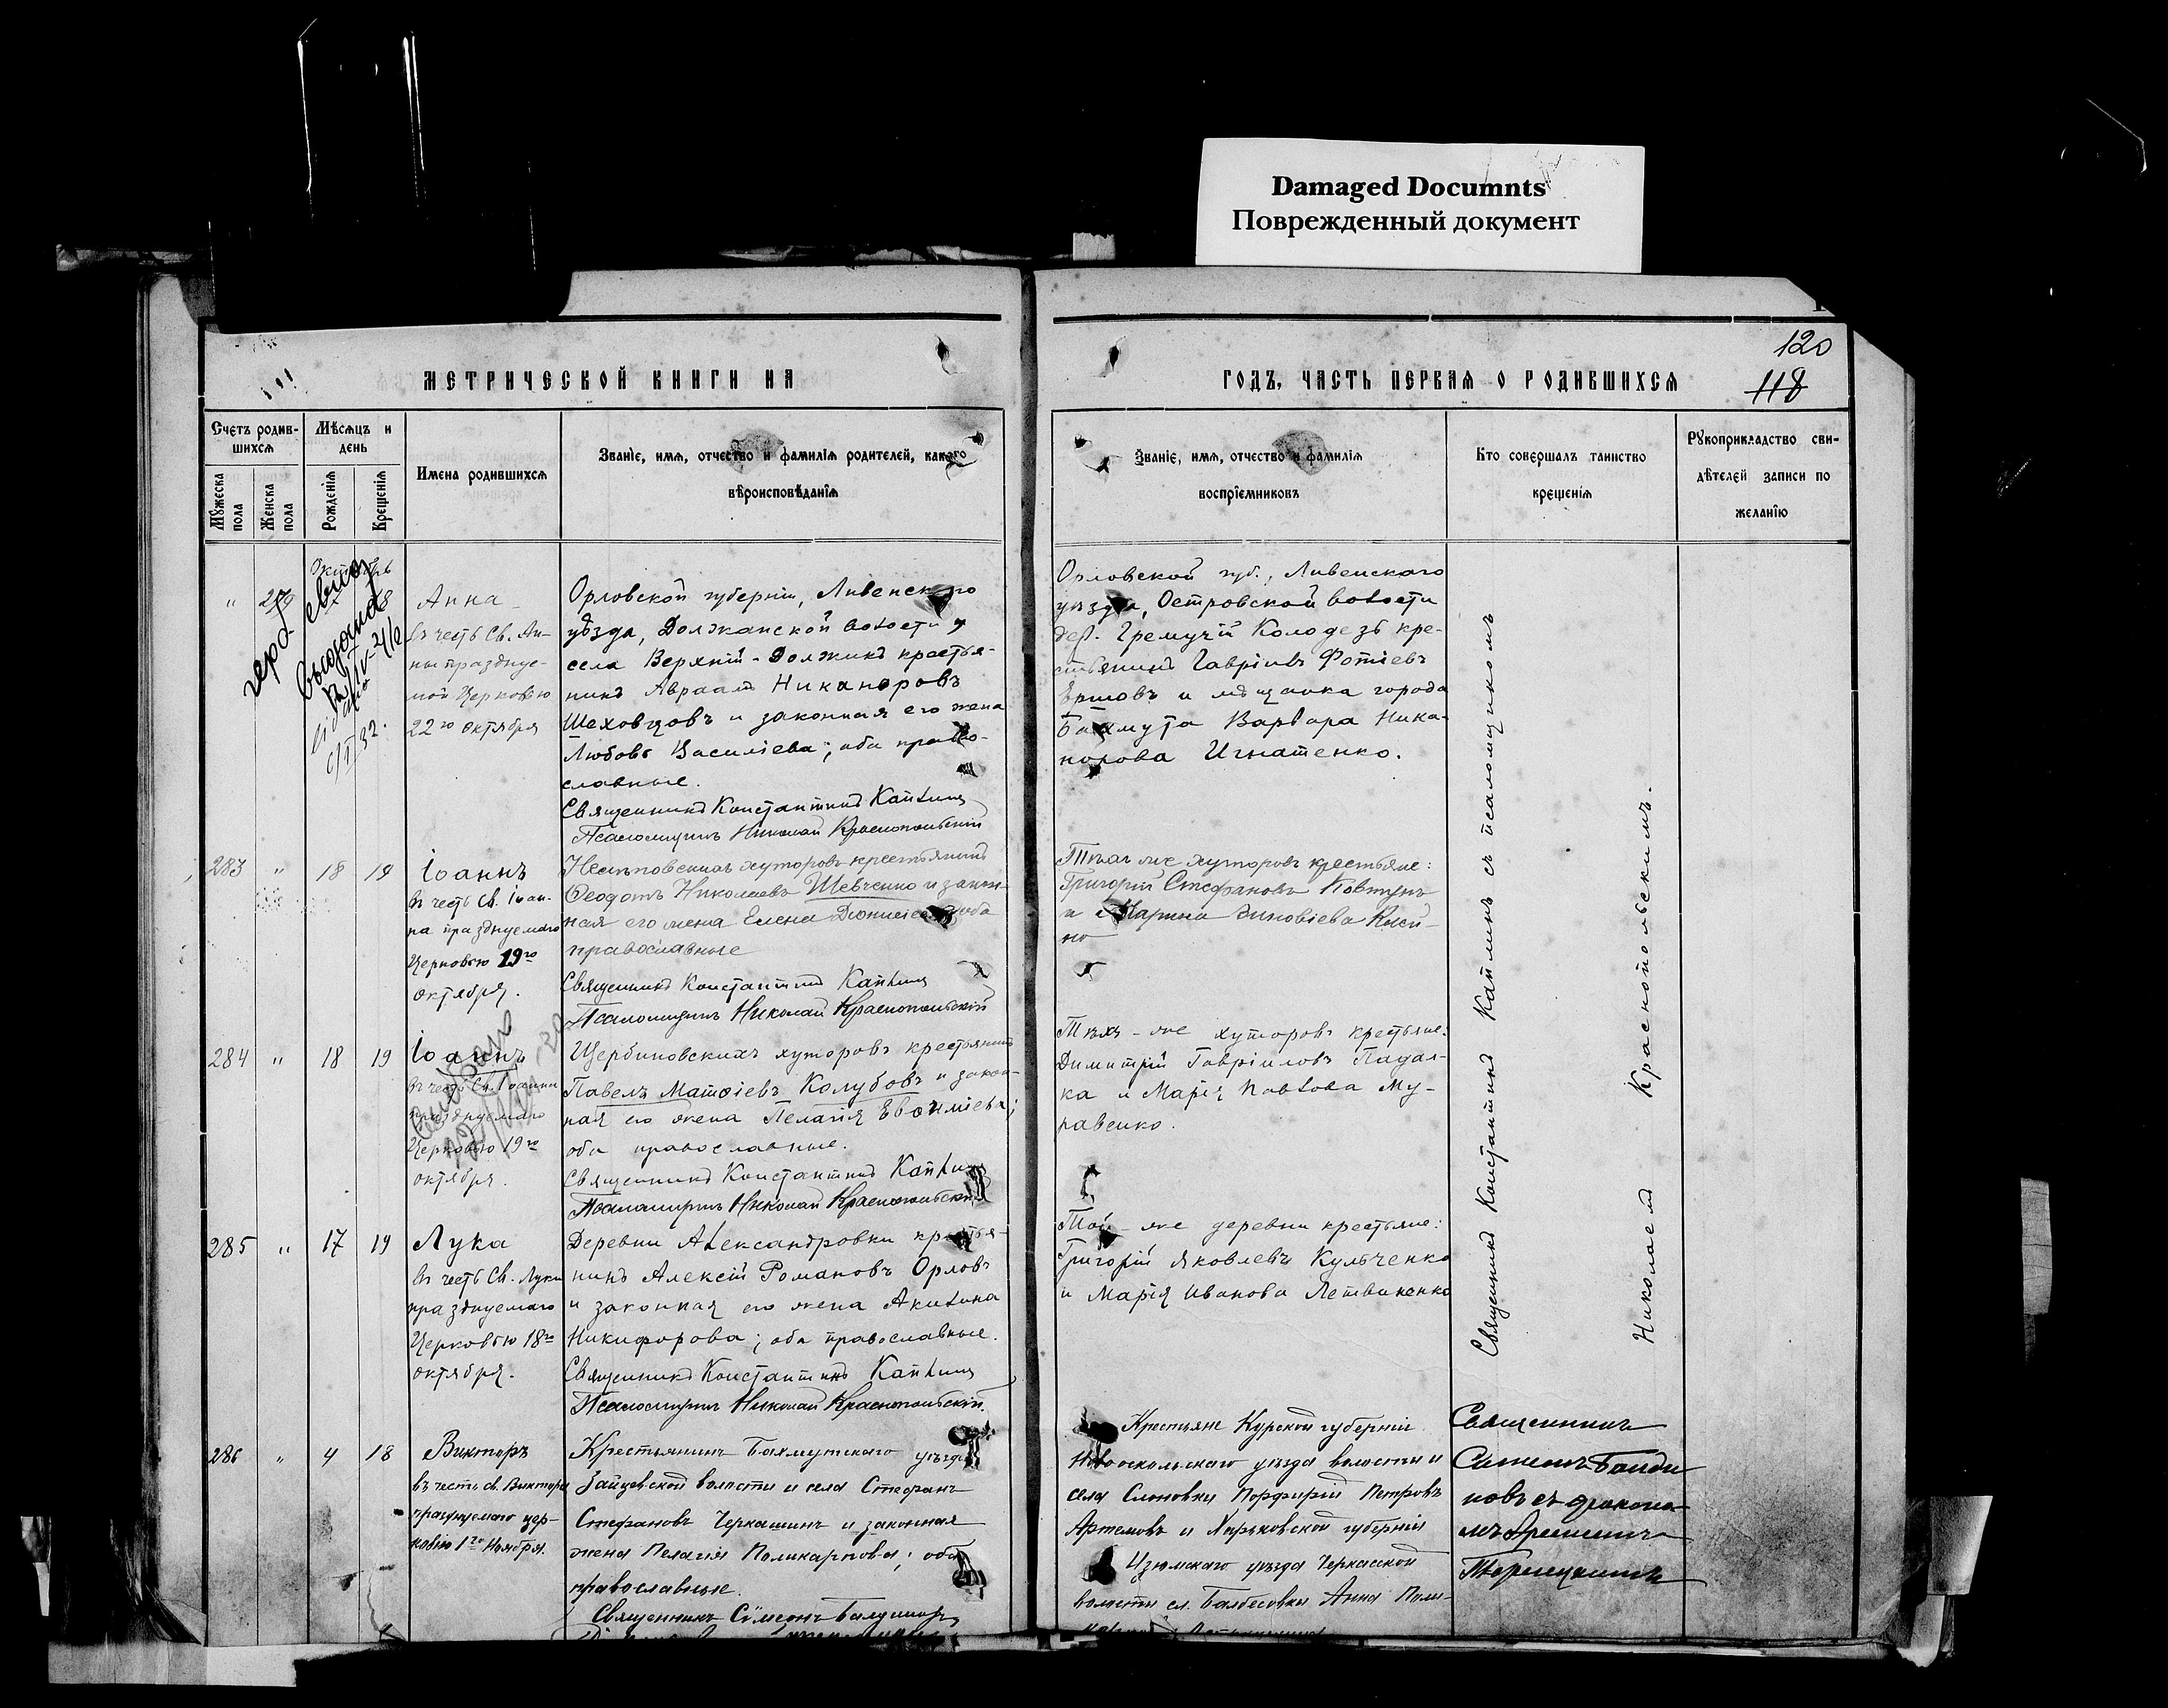 Damaged Documnts
Поврежденный документ
120
118
МЕТРИЧЕСКОЙ КНИГИ НА
ГОДЪ, ЧАСТЬ ПЕРВАЯ О РОДИВШИХСЯ
Счетъ родив-
шихся
Мѣсяцъ и
день
Мужеска
пола
Женска
пола
Рожденія
Крещенія
Имена родившихся
Званіе, имя, отчество и фамилія родителей, какого
вѣроисповѣданія
Званіе, имя, отчество и фамилія
воспріемниковъ
Кто совершалъ таинство
крещенія
Рукоприкладство сви-
дѣтелей записи по
желанію
Октябрь
"
Анна
въ честь Св. Ан-
ны празднуе-
мой Церковью
22го октября
Орловской губерніи, Ливенского
уѣзда, Должанской волости и
села Верхній-Должикъ крестья-
нинъ Авраамъ Никаноровъ
Шеховцовъ и законная его жена
Любовь Василіева; оба право-
славные.
Священникъ Константинъ Каплинъ
Псаломщикъ Николай Краснопольскій
Орловской губ., Ливенскаго
уѣзда, Островской волости
дер. Гремучій Колодезь кре-
стьянинъ Гавріилъ Фотіевъ
Ершовъ и мѣщанка города
Бахмута Варвара Ника-
норова Игнатенко.
283 " 18 19
Іоаннъ
въ честь Св. Іоан-
на празднуемаго
Церковью 19го
октября.
хуторовъ крестьянинъ
Ѳеодотъ Николаевъ Шевченко и закон-
ная его жена Елена оба
православные
Священникъ Константинъ Каплинъ
Псаломщикъ Николай Краснопольскій
Тѣхъ же хуторовъ крестьяне:
Григорій Стефановъ Ковтунъ
и Марина Зиновіева
284 " 18 19
Іоаннъ
въ честь Св. Іоанна
празднуемаго
Церковью 19го
октября.
Щербиновскихъ хуторовъ крестьянинъ
Павелъ Матѳіевъ Колубовъ и закон-
ная его жена Пелагія Евѳиміева;
оба православные.
Священникъ Константинъ Каплинъ
Псаломщикъ Николай Краснопольскій
Тѣхъ-же хуторовъ крестьяне:
Димитрій Гавріиловъ Падал-
ка и Марія Павлова Му-
равенко.
285 " 17 19
Лука
въ честь Св. Луки
празднуемаго
Церковью 18го
октября.
Деревни Александровки крестья-
нинъ Алексій Романовъ Орловъ
и законная его жена Акилина
Никифорова; оба православные.
Священникъ Константинъ Каплинъ
Псаломщикъ Николай Краснопольскій.
Той-же деревни крестьяне:
Григорій Яковлевъ Кульченко
и Марія Иванова Летвиненко
Священникъ Константинъ Каплинъ съ псаломщикомъ
Николаемъ Краснопольскимъ.
286 " 4 18
Викторъ
въ честь св. Виктора
празднуемаго цер-
ковью 1го Ноября.
Крестьянинъ Бахмутскаго уѣзда
Зайцевской волости и села Стефанъ
Стефановъ Черкашинъ и законная
жена Пелагія Поликарпова; оба
православные.
Священникъ Сѵмеонъ
Крестьяне Курской губерніи
Новооскольскаго уѣзда волости и
села Слоновки Порфирій Петровъ
Артемовъ и Харьковской губерніи
Изюмскаго уѣзда Черкасской
волости сл. Анна Поли-
Священникъ